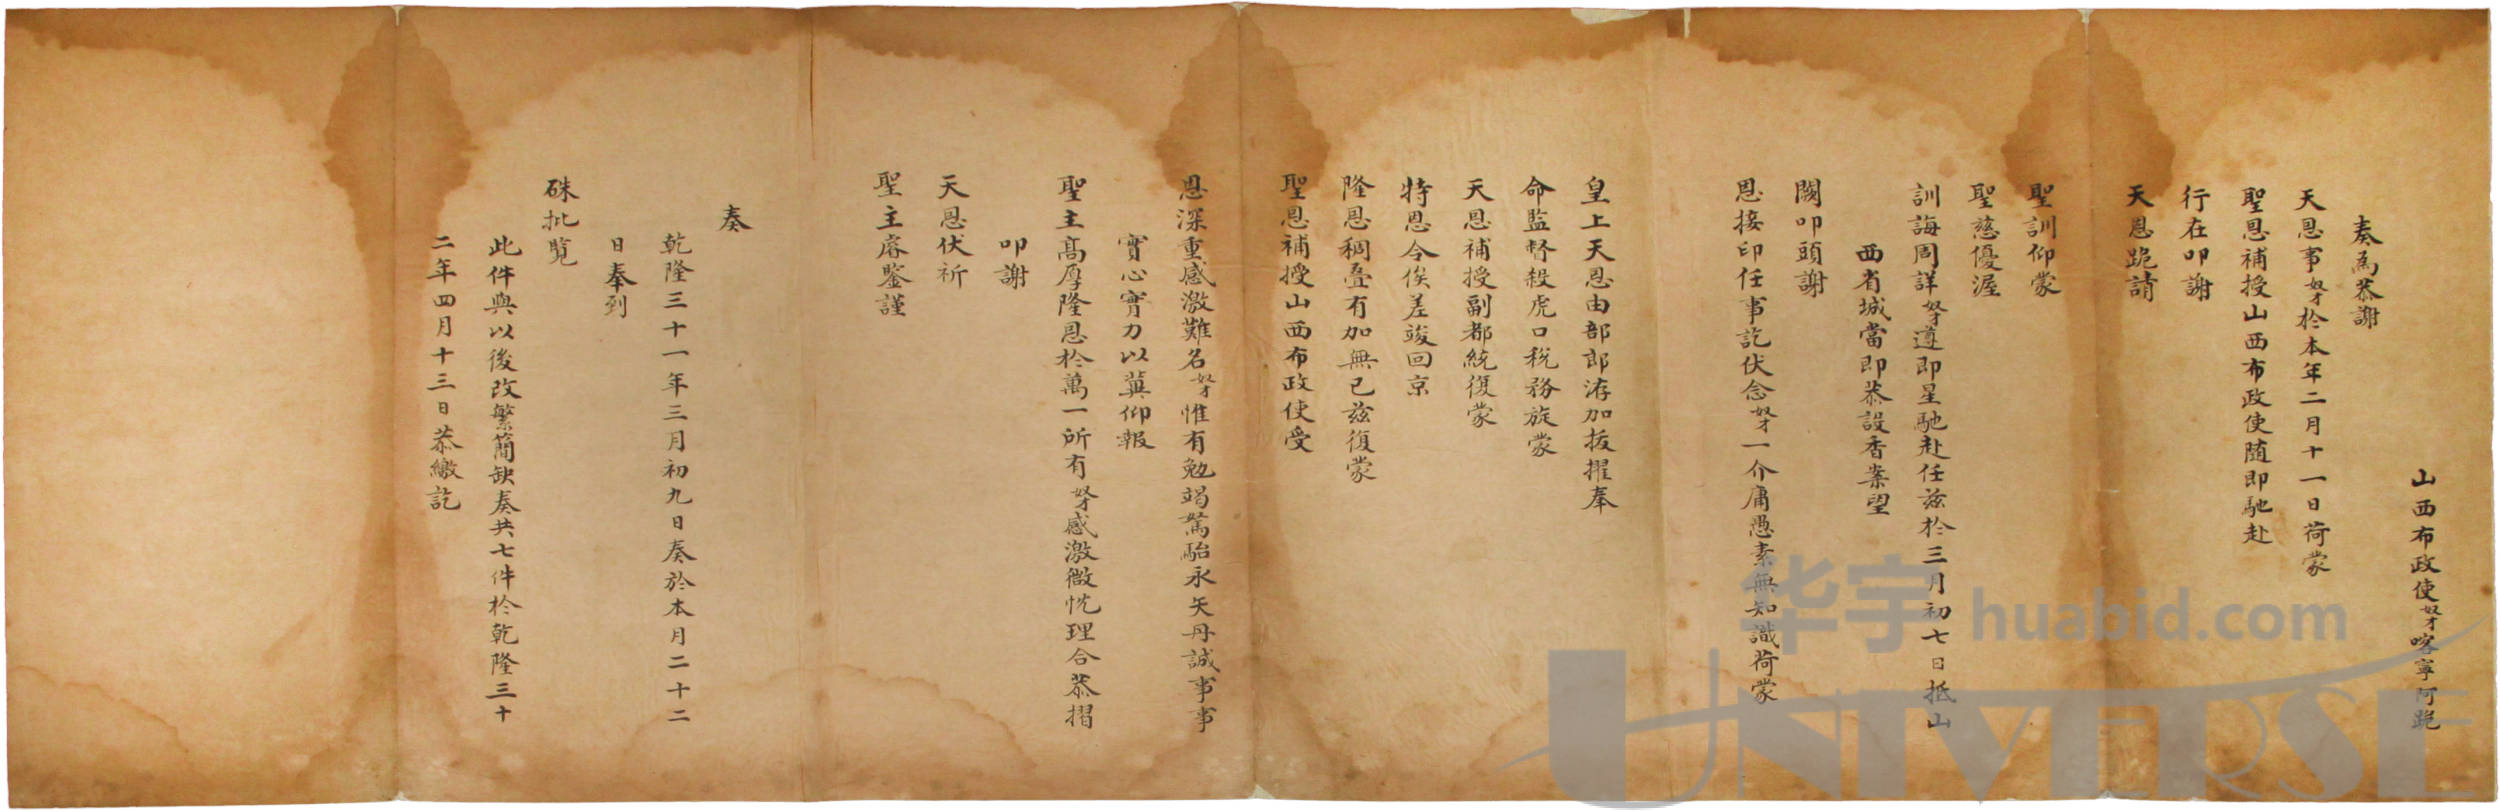 山西布政使奴才喀寧阿跪
奏為恭謝
天恩事奴才於本年二月十一日荷蒙
聖恩補授山西布政使隨即馳赴
行在叩謝
天恩跪請
聖訓仰蒙
聖慈優渥
訓誨周詳奴才遵即星馳赴任茲於三月初七日抵山
西省城當即恭設香案望
闕叩頭謝
恩接印任事訖伏念奴才一介庸愚素無知識荷蒙
皇上天恩由部郎洊加拔擢奉
命監督殺虎口稅務旋蒙
天恩補授副都統復蒙
特恩令俟差竣回京
隆恩稠叠有加無已茲復蒙
聖恩補授山西布政使受
恩深重感激難名奴才惟有勉竭駑駘永矢丹誠事事
實心實力以冀仰報
聖主高厚隆恩於萬一所有奴才感激微忱理合恭摺
叩謝
天恩伏祈
聖主睿鑒謹
奏
乾隆三十一年三月初九日奏於本月二十二
日奉到
硃批覽
此件與以後改繁簡缺奏共七件於乾隆三十
二年四月十三日恭繳訖
华宇 huabid.com
UNIVERSE